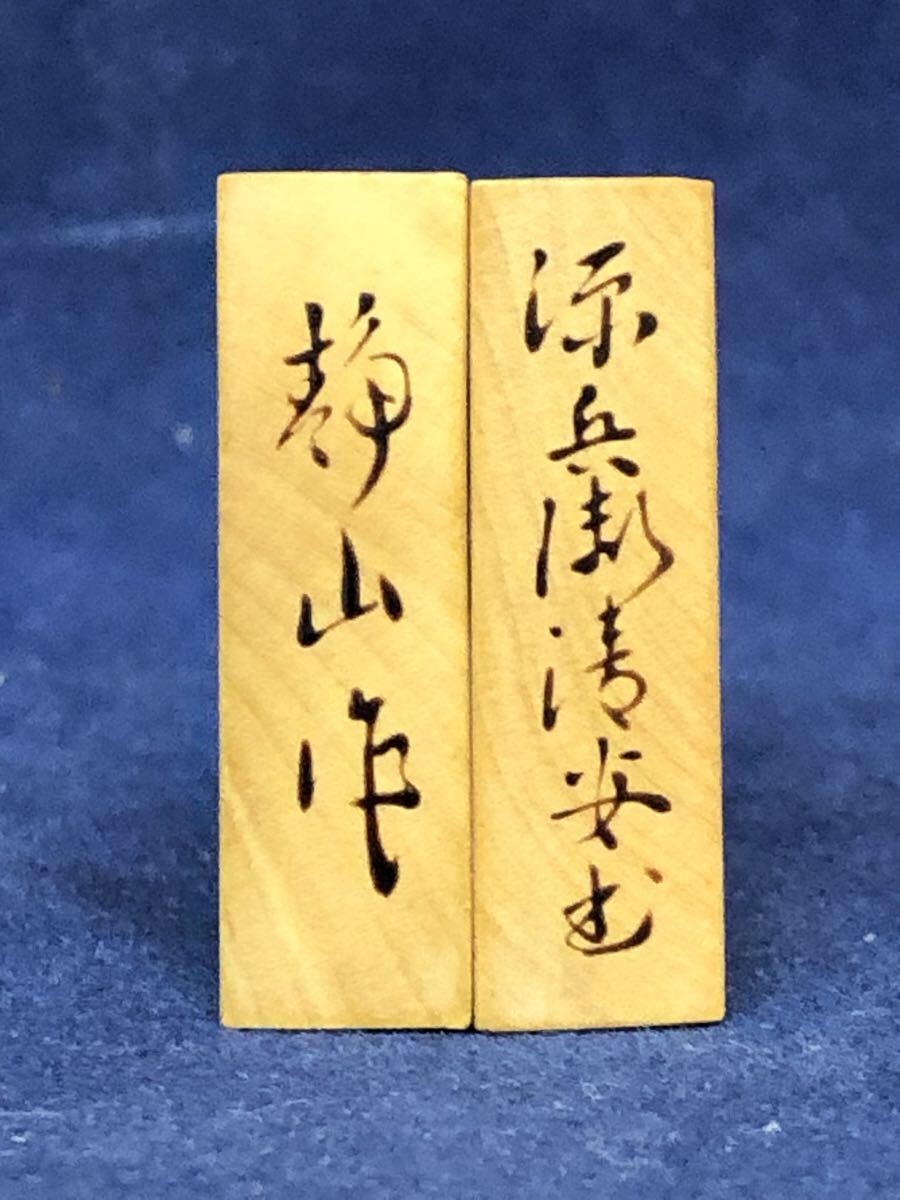 源兵衛清安書
静山作